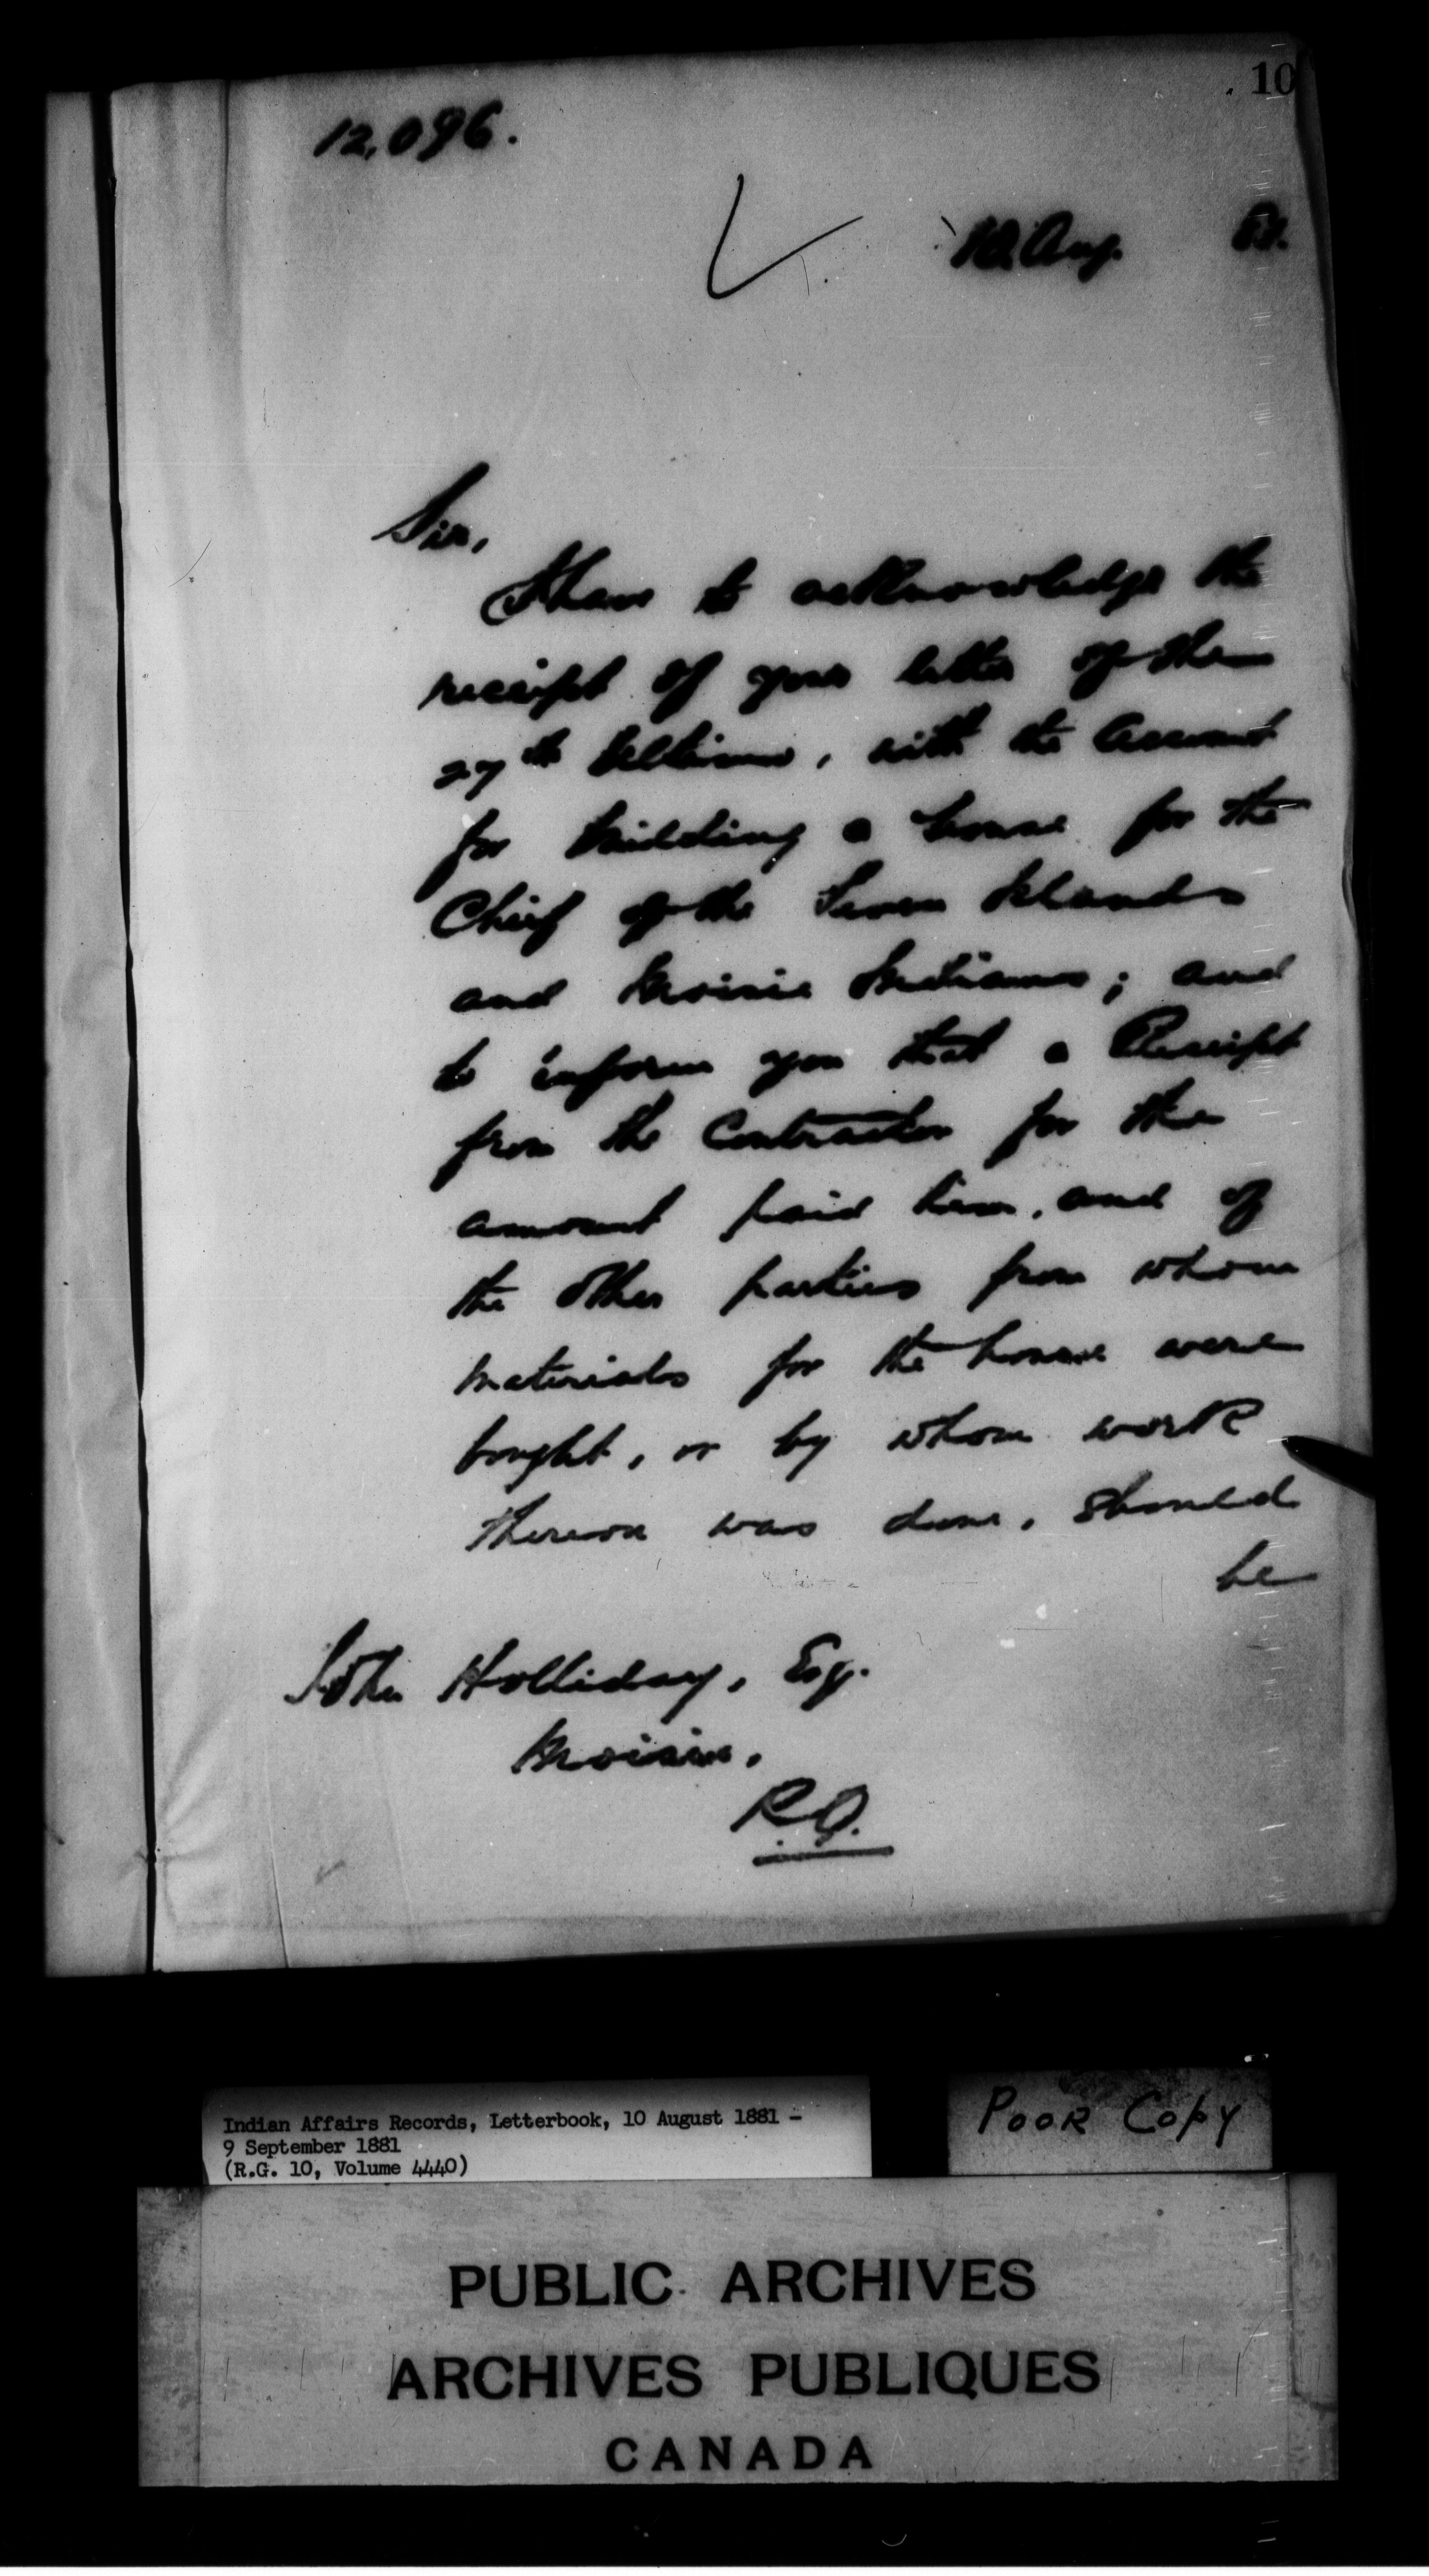 10
12,096.
10 Aug. 81.
Sir,
I have to acknowledge the
receipt of your letter of the
27th Ultimo, with the Account
for building a house for the
Chief of the Seven Islands
and Moisie Indians; and
to inform you that a Receipt
from the Contractor for the
amount paid him, and of
the other parties from whom
materials for the house were
bought, or by whom work
thereon was done, should
be
John Holliday, Esq.
Moisie,
P.Q.
Indian Affairs Records, Letterbook, 10 August 1881 -
9 September 1881
(R.G. 10, Volume 4440)
POOR COPY
PUBLIC ARCHIVES
ARCHIVES PUBLIQUES
CANADA